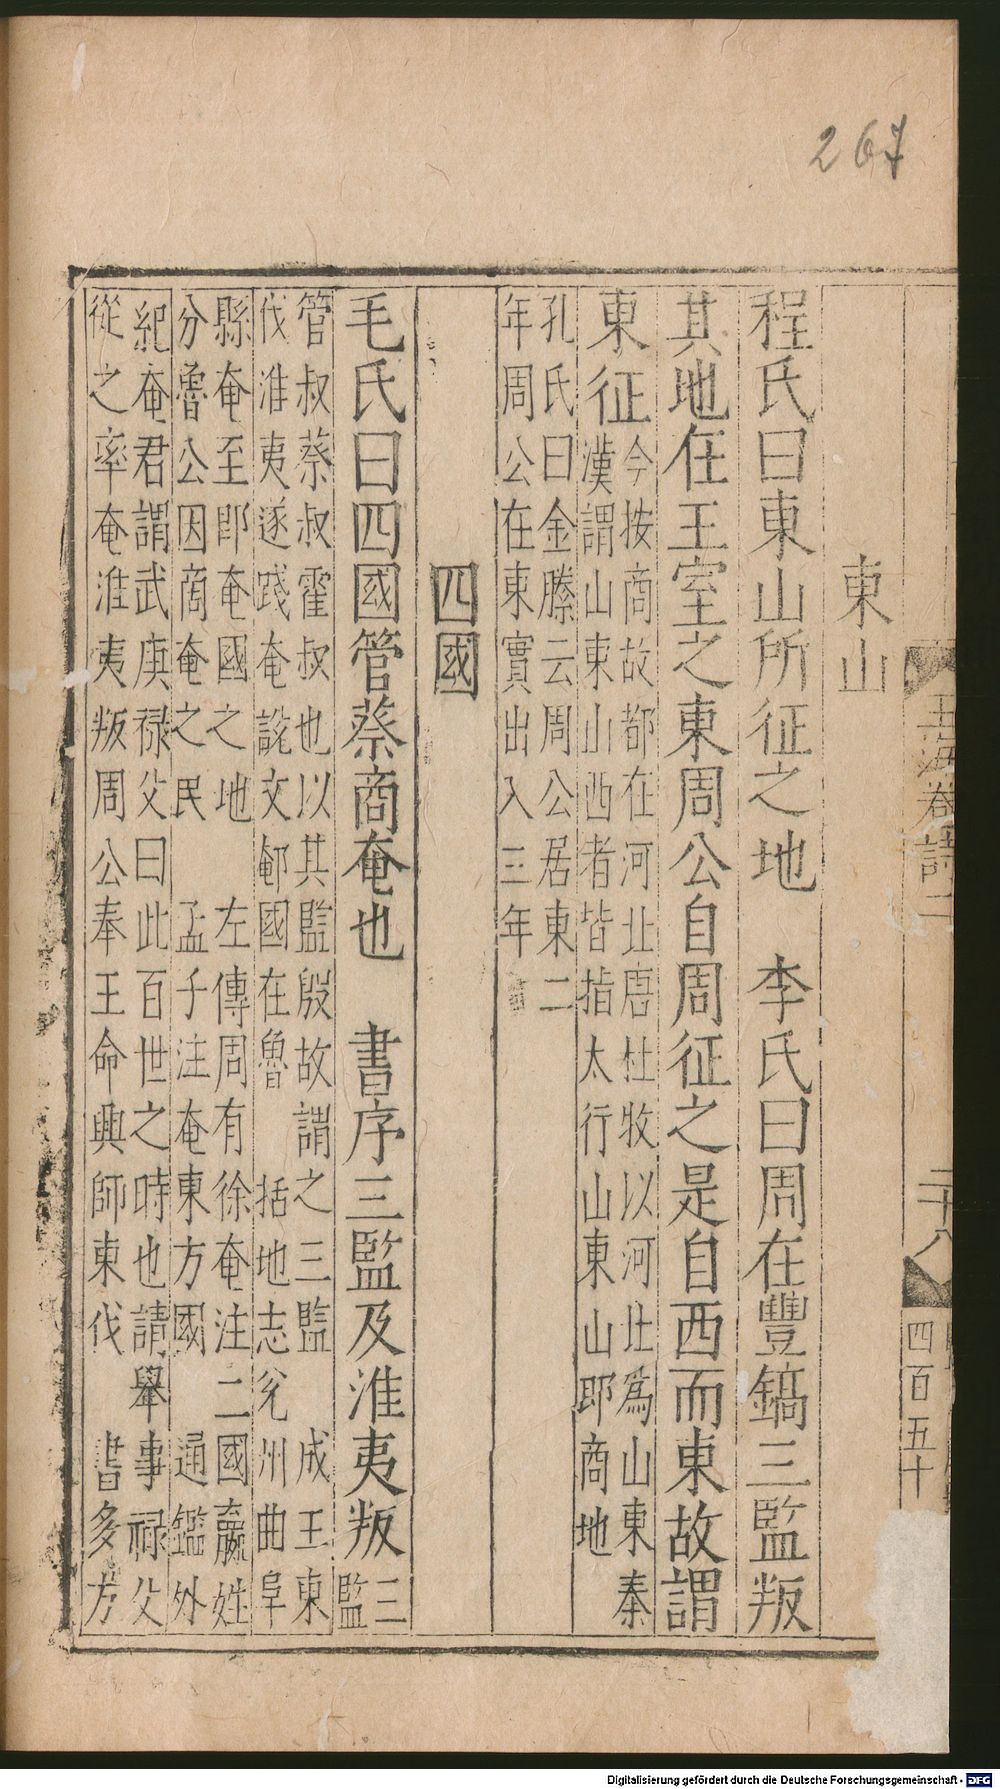 267
東山
程氏曰東山所征之地　李氏曰周在豐鎬三監叛
其地在王室之東周公自周征之是自西而東故謂
東征
今按商故都在河北唐杜牧以河北爲山東秦
漢謂山東山西者皆指太行山東山郎商地
孔氏曰金縢云周公居東二
年周公在東實出入三年
四國
毛氏曰四國管蔡商奄也　書序三監及淮夷叛
三
監
管叔蔡叔霍叔也以其監殷故謂之三監　成王東
伐淮夷遂踐奄說文郁國在魯　括地志兖州曲阜
縣奄至即奄國之地　左傳周有徐奄注二國嬴姓
分魯公因商奄之民　孟子注奄東方國　通鑑外
紀奄君謂武庚祿父曰此百世之時也請舉事祿父
從之率奄淮夷叛周公奉王命興師東伐　書多方
玉海卷詩二
二十八
四百五十
Digitalisierung gefördert durch die Deutsche Forschungsgemeinschaft - DFG